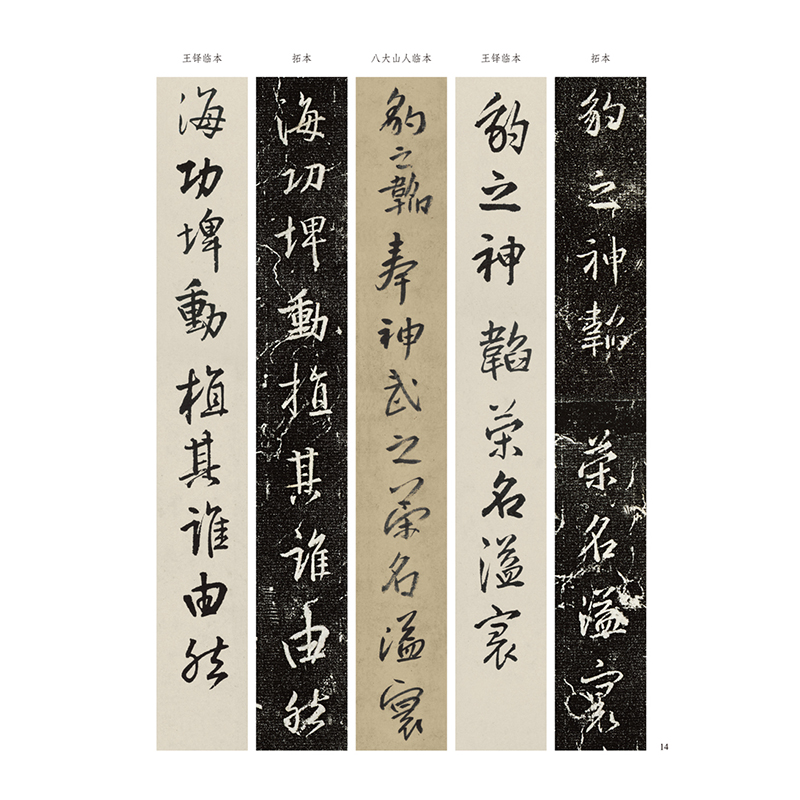 拓本
豹之神韜榮名溢寰
王铎临本
豹之神韜榮名溢寰
八大山人临本
豹之韜奉神武之榮名溢寰
拓本
海功埤動植其誰由然
王铎临本
海功埤動植其誰由然
14